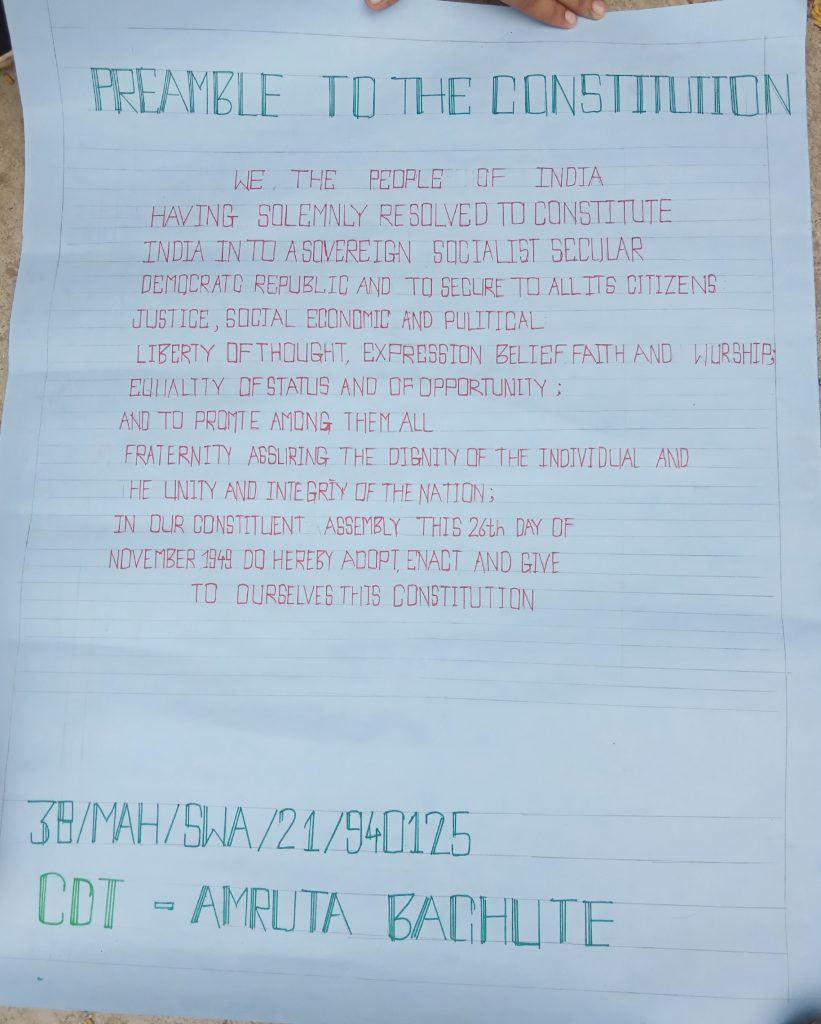 PREAMBLE TO THE CONSTITUTION
WE THE PEOPLE OF INDIA
HAVING SOLEMNLY RESOLVED TO CONSTITUTE
INDIA INTO A SOVEREIGN SOCIALIST SECULAR
DEMOCRATC REPUBLIC AND TO SECURE TO ALL ITS CITIZENS
JUSTICE, SOCIAL ECONOMIC AND PULITICAL
LIBERTY OF THOUGHT, EXPRESSION BELIEF FAITH AND WURSHIP;
EUUALITY OF STATUS AND OF OPPORTUNITY ;
AND TO PROMTE AMONG THEM ALL
FRATERNITY ASSURING THE DIGNITY OF THE INDIVIDUAL AND
THE UNITY AND INTEGRIY OF THE NATION ;
IN OUR CONSTITUENT ASSEMBLY THIS 26th DAY OF
NOVEMBER 1949 DO HEREBY ADOPT, ENACT AND GIVE
TO OURSELVES THIS CONSTITUTION
38/MAH/SWA/21/940125
CDT - AMRUTA BACHUTE